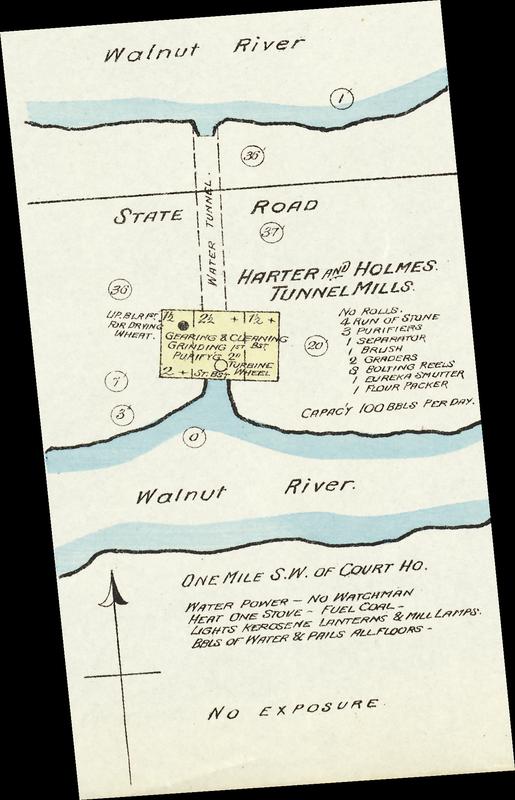 Walnut River
1
36
STATE ROAD
37
WATER TUNNEL.
HARTER AND HOLMES.
TUNNEL MILLS.
36
UP. BLR 1ST
FOR DRYING
WHEAT.
1½ 2½ + 1½ +
GEARING & CLEANING
GRINDING 1ST BST.
PURIFY'G 2D
TURBINE
WHEEL
2 + ST. BST.
20
NO ROLLS.
4 RUN OF STONE
3 PURIFIERS
1 SEPARATOR
1 BRUSH
2 GRADERS
8 BOLTING REELS
1 EUREKA SMUTTER
1 FLOUR PACKER
7
3
CAPAC'Y 100 BBLS PER DAY.
0
Walnut River.
ONE MILE S.W. OF COURT HO.
WATER POWER – NO WATCHMAN
HEAT ONE STOVE – FUEL COAL –
LIGHTS KEROSENE LANTERNS & MILL LAMPS.
BBLS OF WATER & PAILS ALL FLOORS –
NO EXPOSURE